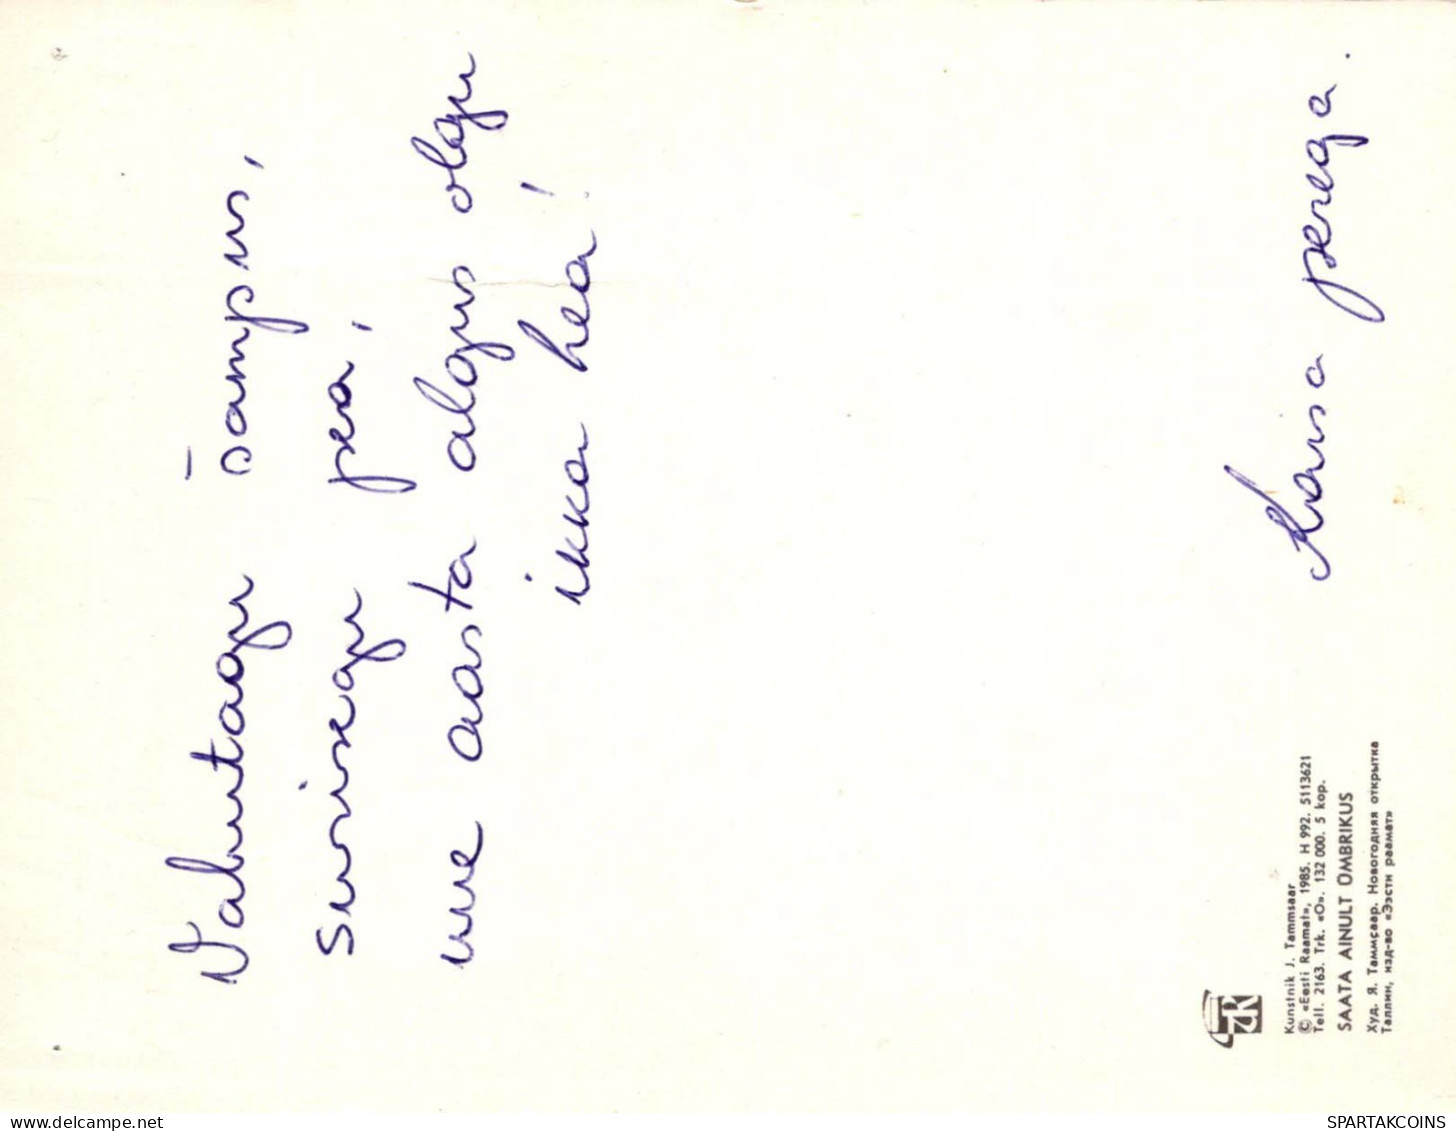 Vahutagu šampus,
surisegu pea,
uue aasta algus olgu
ikka hea!
Kaisa perega.
Kunstnik J. Tammsaar
© «Eesti Raamat», 1985. H 992. 5113621
Tell. 2163. Trk. «O». 132 000. 5 kop.
SAATA AINULT ÜMBRIKUS
Худ. Я. Таммсаар. Новогодняя открытка
Таллин, изд-во «Ээсти раамат»
www.delcampe.net
SPARTAKCOINS